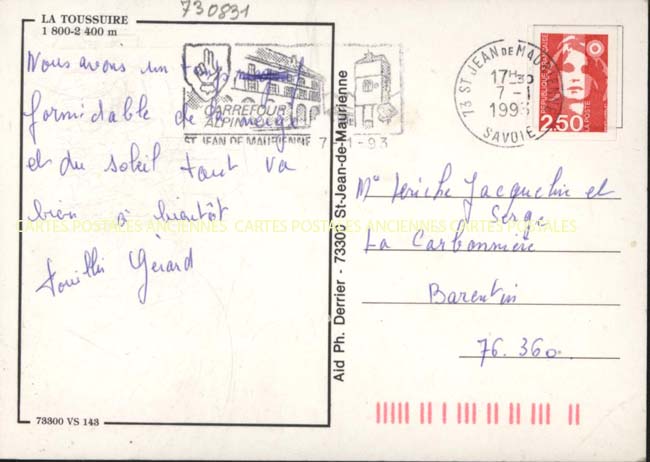 730831
LA TOUSSUIRE
1 800-2 400 m
Nous avons un
formidable de la neige
et du soleil tout va
bien à bientôt
Gérard
CARREFOUR
ALPIN
ST JEAN DE MAURIENNE 7-1-93
73 ST JEAN DE MAU
17H30
7-1
1993
SAVOIE
REPUBLIQUE FRANÇAISE
LA POSTE
2,50
Jacqueline et
Serge
La Carbonnière
Barentin
76.360
Aid Ph. Derrier - 73300 St-Jean-de-Maurienne
73300 VS 143
CARTES POSTALES ANCIENNES CARTES POSTALES ANCIENNES CARTES POSTALES